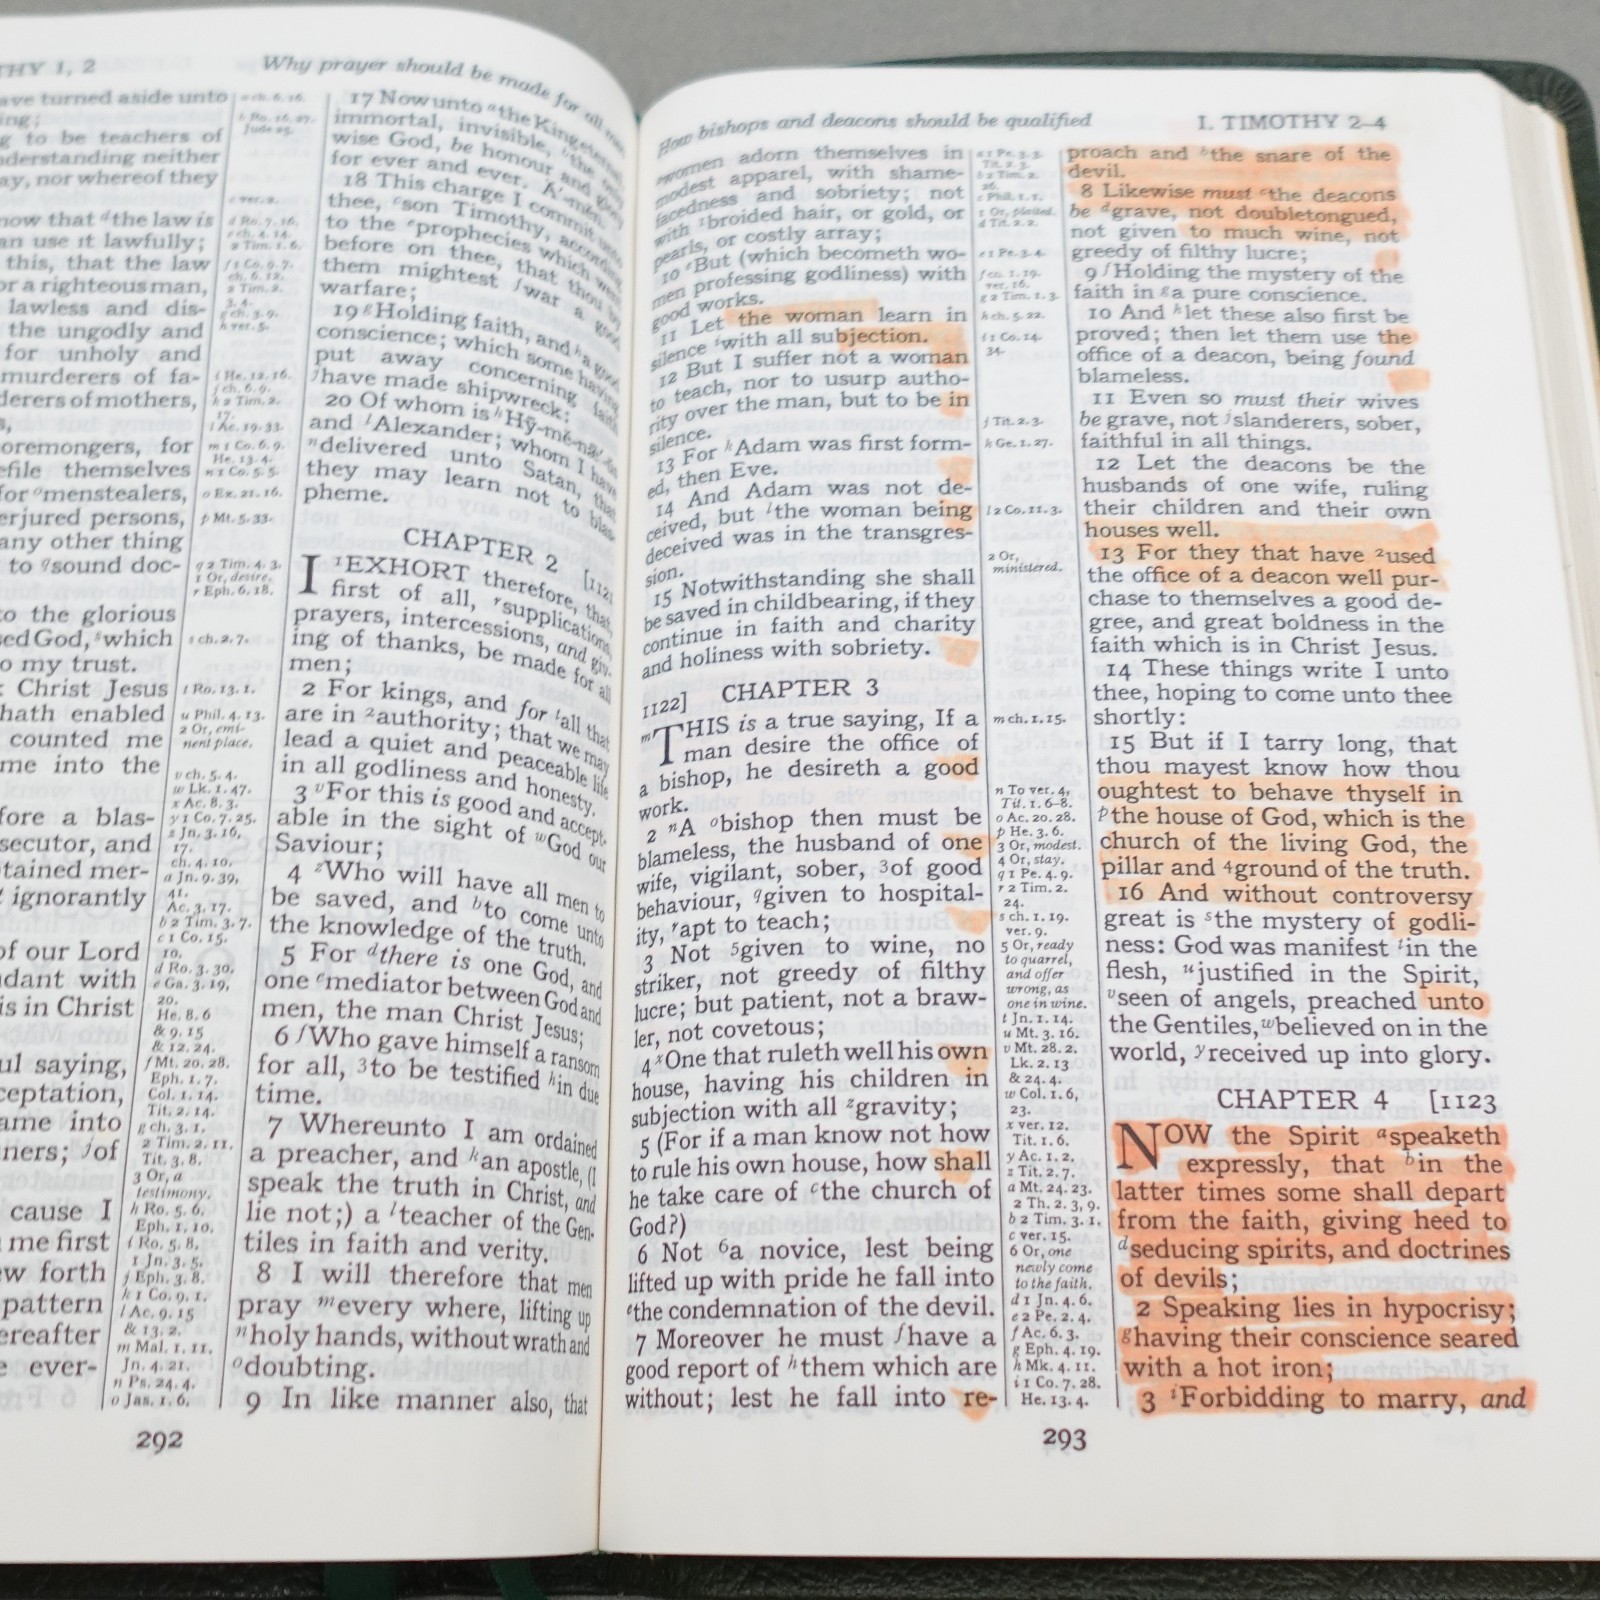 THY 1, 2
Why prayer should be made for all men
ave turned aside unto
ing;
g to be teachers of
derstanding neither
ay, nor whereof they
now that d the law is
an use it lawfully;
this, that the law
or a righteous man,
lawless and dis-
the ungodly and
for unholy and
murderers of fa-
derers of mothers,
s,
oremongers, for
efile themselves
for o menstealers,
erjured persons,
any other thing
to q sound doc-
to the glorious
sed God, s which
o my trust.
Christ Jesus
hath enabled
counted me
me into the
fore a blas-
secutor, and
tained mer-
ignorantly
of our Lord
dant with
is in Christ
ul saying,
ceptation,
ame into
ners; j of
cause I
me first
ew forth
pattern
ereafter
e ever-
a ch. 6. 16.
Jude 25.
c ver. 2.
d Ro. 7. 16.
e ch. 4. 14.
2 Tim. 1. 6.
f 1 Co. 9. 7.
ch. 6. 12.
2 Tim. 2.
3, 4.
g ch. 3. 9.
h ver. 5.
i He. 12. 16.
j ch. 6. 9.
k 2 Tim. 2.
17.
l Ac. 19. 33.
m 1 Co. 6. 9.
He. 13. 4.
n 1 Co. 5. 5.
o Ex. 21. 16.
p Mt. 5. 33.
q 2 Tim. 4. 3.
1 Or, desire.
r Eph. 6. 18.
s ch. 2. 7.
t Ro. 13. 1.
u Phil. 4. 13.
2 Or, emi-
nent place.
v ch. 5. 4.
w Lk. 1. 47.
x Ac. 8. 3.
y 1 Co. 7. 25.
z Jn. 3. 16,
17.
ch. 4. 10.
a Jn. 9. 39,
41.
Ac. 3. 17.
b 2 Tim. 3. 7.
c 1 Co. 15.
10.
d Ro. 3. 30.
e Ga. 3. 19,
20.
He. 8. 6
& 9. 15
& 12. 24.
f Mt. 20. 28.
Eph. 1. 7.
Col. 1. 14.
Tit. 2. 14.
g ch. 3. 1.
2 Tim. 2. 11.
Tit. 3. 8.
3 Or, a
testimony.
h Ro. 5. 6.
Eph. 1. 10.
i Ro. 5. 8.
1 Jn. 3. 5.
j Eph. 3. 8.
k 1 Co. 9. 1.
l Ac. 9. 15
& 13. 2.
m Mal. 1. 11.
Jn. 4. 21.
n Ps. 24. 4.
o Jas. 1. 6.
17 Now unto a the King eternal,
immortal, invisible, b the only
wise God, be honour and glory
for ever and ever. A-men.
18 This charge I commit unto
thee, c son Timothy, according
to the e prophecies which went
before on thee, that thou by
them mightest f war a good
warfare;
19 g Holding faith, and h a good
conscience; which some having
put away concerning faith
j have made shipwreck:
20 Of whom is k Hȳ-mē-næ-us
and l Alexander; whom I have
n delivered unto Satan, that
they may learn not to blas-
pheme.
CHAPTER 2 [1121
I 1 EXHORT therefore, that,
first of all, r supplications,
prayers, intercessions, and giv-
ing of thanks, be made for all
men;
2 For kings, and for t all that
are in 2 authority; that we may
lead a quiet and peaceable life
in all godliness and honesty.
3 v For this is good and accept-
able in the sight of w God our
Saviour;
4 z Who will have all men to
be saved, and b to come unto
the knowledge of the truth.
5 For d there is one God, and
one e mediator between God and
men, the man Christ Jesus;
6 f Who gave himself a ransom
for all, 3 to be testified h in due
time.
7 Whereunto I am ordained
a preacher, and k an apostle, (I
speak the truth in Christ, and
lie not;) a l teacher of the Gen-
tiles in faith and verity.
8 I will therefore that men
pray m every where, lifting up
n holy hands, without wrath and
o doubting.
9 In like manner also, that
292
How bishops and deacons should be qualified
I. TIMOTHY 2-4
women adorn themselves in
modest apparel, with shame-
facedness and sobriety; not
with 1 broided hair, or gold, or
pearls, or costly array;
10 e But (which becometh wo-
men professing godliness) with
good works.
11 Let the woman learn in
silence i with all subjection.
12 But I suffer not a woman
to teach, nor to usurp autho-
rity over the man, but to be in
silence.
13 For k Adam was first form-
ed, then Eve.
14 And Adam was not de-
ceived, but l the woman being
deceived was in the transgres-
sion.
15 Notwithstanding she shall
be saved in childbearing, if they
continue in faith and charity
and holiness with sobriety.
1122] CHAPTER 3
m THIS is a true saying, If a
man desire the office of
a bishop, he desireth a good
work.
2 n A o bishop then must be
blameless, the husband of one
wife, vigilant, sober, 3 of good
behaviour, q given to hospital-
ity, r apt to teach;
3 Not 5 given to wine, no
striker, not greedy of filthy
lucre; but patient, not a braw-
ler, not covetous;
4 x One that ruleth well his own
house, having his children in
subjection with all z gravity;
5 (For if a man know not how
to rule his own house, how shall
he take care of c the church of
God?)
6 Not 6 a novice, lest being
lifted up with pride he fall into
e the condemnation of the devil.
7 Moreover he must f have a
good report of h them which are
without; lest he fall into re-
a 1 Pe. 3. 3.
Tit. 2. 3.
b 2 Tim. 2.
26.
c Phil. 1. 1.
1 Or, plaited.
d Tit. 2. 2.
e 1 Pe. 3. 4.
f ch. 1. 19.
ver. 16.
g 2 Tim. 1. 3.
h ch. 5. 22.
i 1 Co. 14.
34.
j Tit. 2. 3.
k Ge. 1. 27.
l 2 Co. 11. 3.
2 Or,
ministered.
m ch. 1. 15.
n To ver. 4,
Tit. 1. 6-8.
o Ac. 20. 28.
p He. 3. 6.
3 Or, modest.
4 Or, stay.
q 1 Pe. 4. 9.
r 2 Tim. 2.
24.
s ch. 1. 19.
ver. 9.
5 Or, ready
to quarrel,
and offer
wrong, as
one in wine.
t Jn. 1. 14.
u Mt. 3. 16.
v Mt. 28. 2.
Lk. 2. 13
& 24. 4.
w Col. 1. 6,
23.
x ver. 12.
Tit. 1. 6.
y Ac. 1. 2.
z Tit. 2. 7.
a Mt. 24. 23.
2 Th. 2. 3, 9.
b 2 Tim. 3. 1.
c ver. 15.
6 Or, one
newly come
to the faith.
d 1 Jn. 4. 6.
e 2 Pe. 2. 4.
f Ac. 6. 3.
g Eph. 4. 19.
h Mk. 4. 11.
i 1 Co. 7. 28.
He. 13. 4.
proach and b the snare of the
devil.
8 Likewise must c the deacons
be d grave, not doubletongued,
not given to much wine, not
greedy of filthy lucre;
9 f Holding the mystery of the
faith in g a pure conscience.
10 And h let these also first be
proved; then let them use the
office of a deacon, being found
blameless.
11 Even so must their wives
be grave, not j slanderers, sober,
faithful in all things.
12 Let the deacons be the
husbands of one wife, ruling
their children and their own
houses well.
13 For they that have 2 used
the office of a deacon well pur-
chase to themselves a good de-
gree, and great boldness in the
faith which is in Christ Jesus.
14 These things write I unto
thee, hoping to come unto thee
shortly:
15 But if I tarry long, that
thou mayest know how thou
oughtest to behave thyself in
p the house of God, which is the
church of the living God, the
pillar and 4 ground of the truth.
16 And without controversy
great is s the mystery of godli-
ness: God was manifest t in the
flesh, u justified in the Spirit,
v seen of angels, preached unto
the Gentiles, w believed on in the
world, y received up into glory.
CHAPTER 4 [1123
NOW the Spirit a speaketh
expressly, that b in the
latter times some shall depart
from the faith, giving heed to
d seducing spirits, and doctrines
of devils;
2 Speaking lies in hypocrisy;
g having their conscience seared
with a hot iron;
3 i Forbidding to marry, and
293